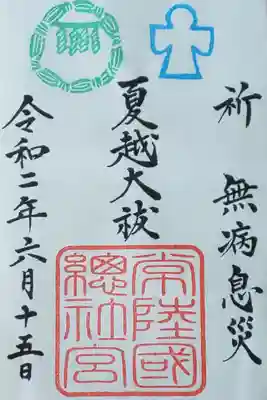 祈 無病息災
夏越大祓
常陸國總社宮
令和二年六月十五日